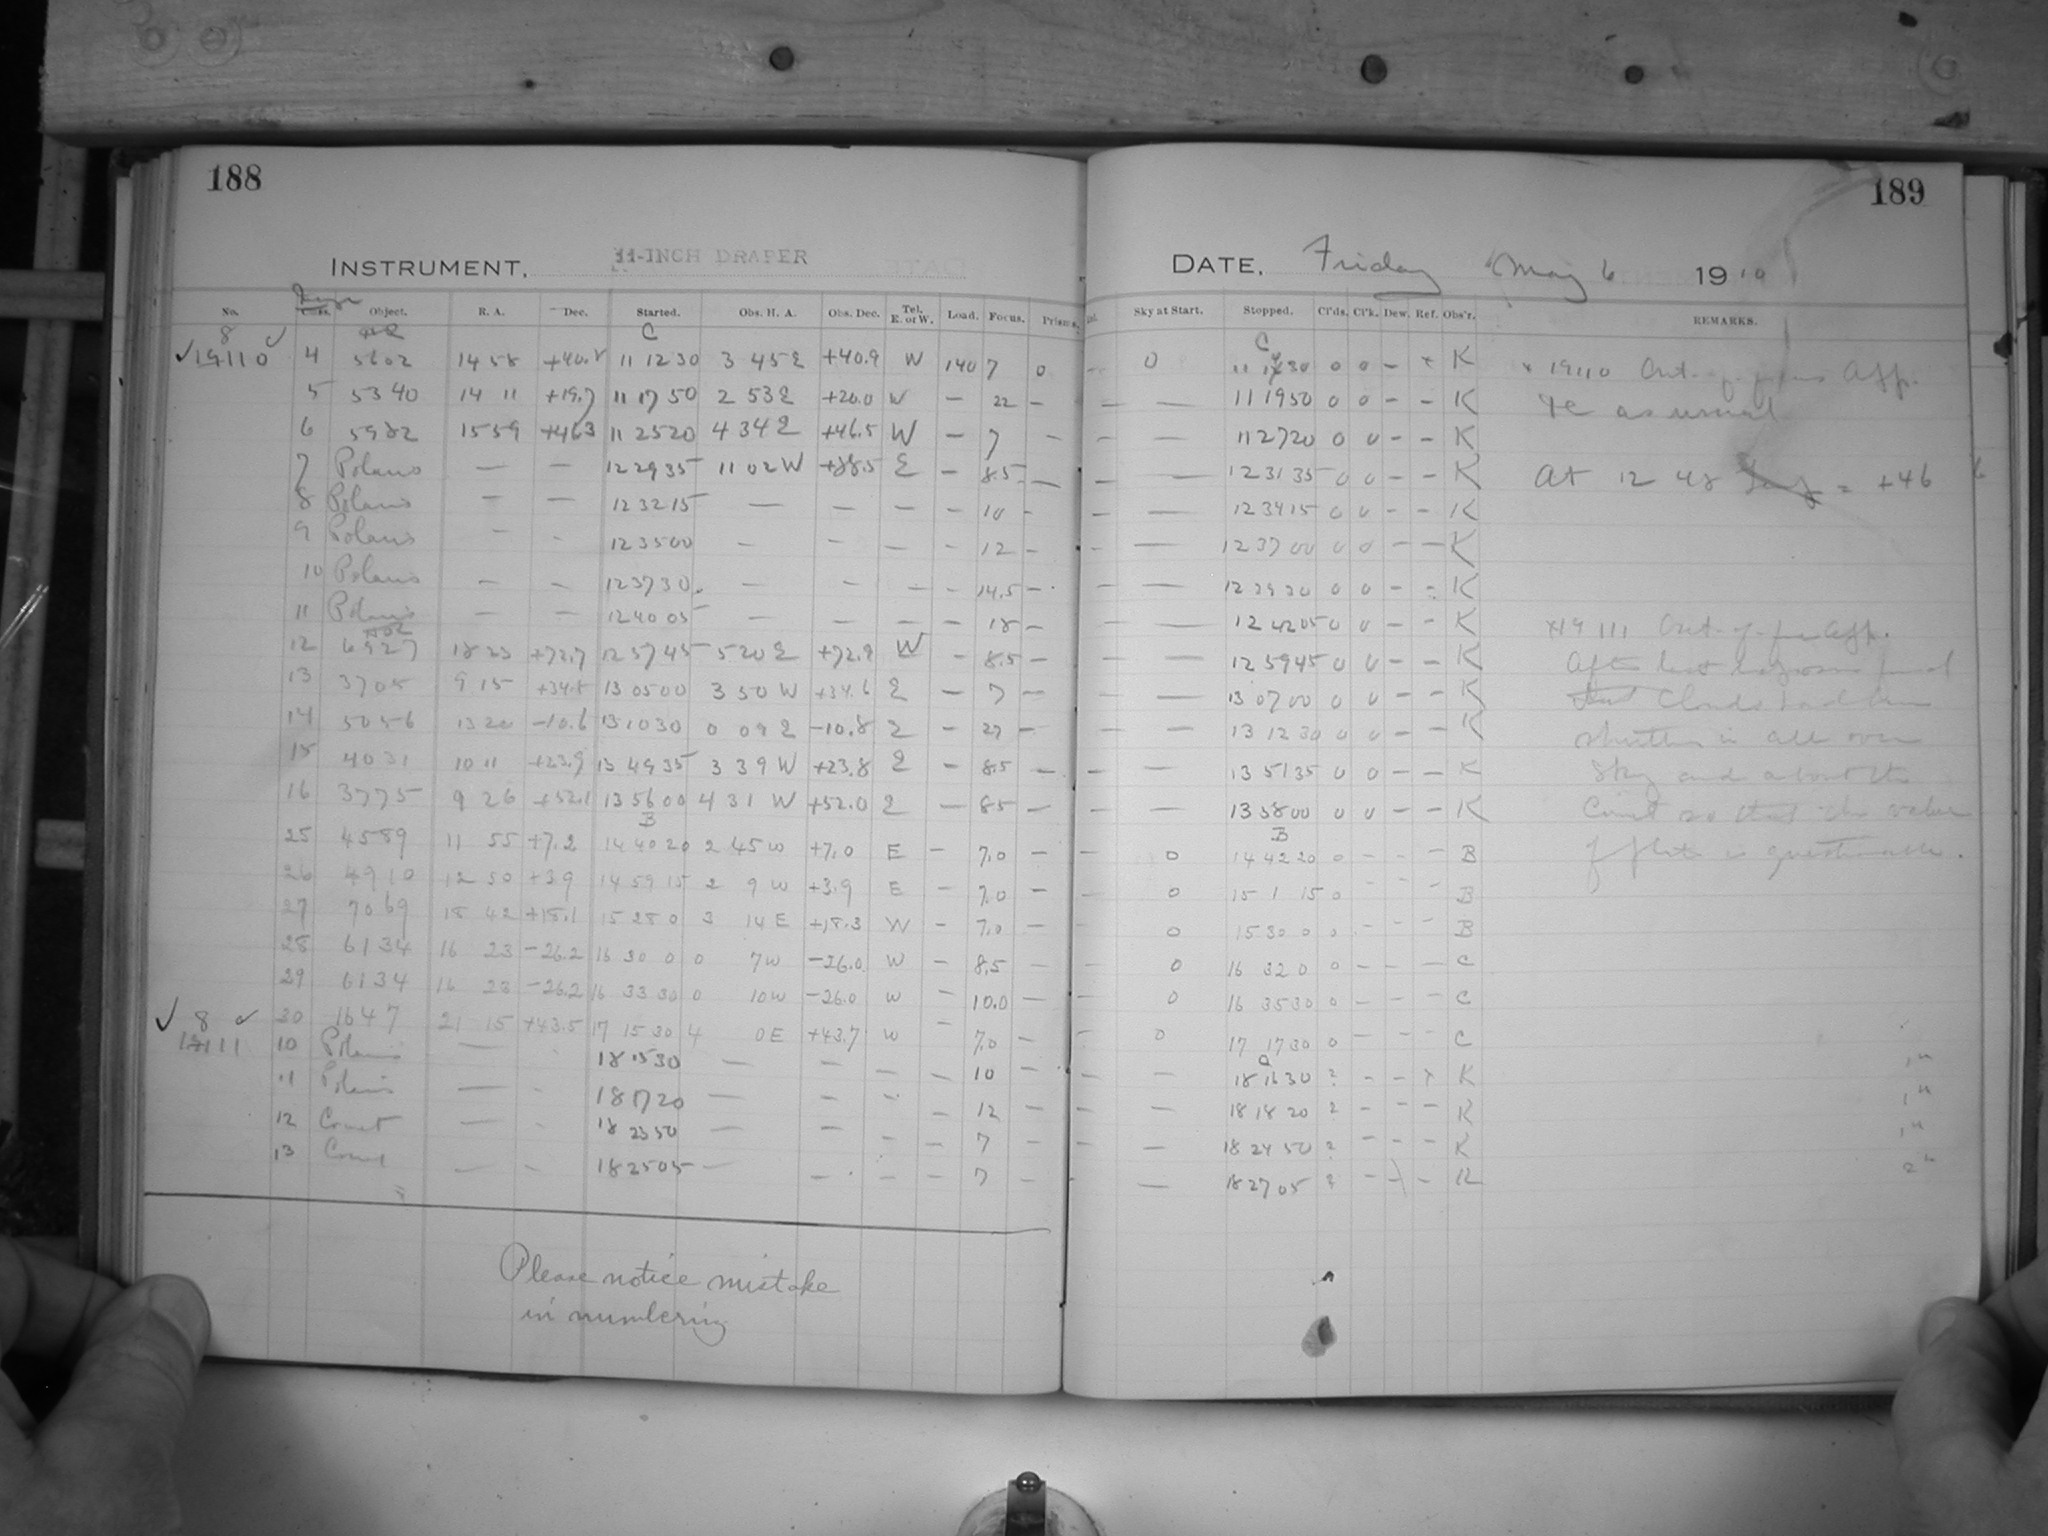 188
INSTRUMENT, 11-INCH DRAPER
No. Object. R. A. Dec. Started. Obs. H. A. Obs. Dec. Tel. E. or W. Load. Focus. Prisms.
8 C
19110 4 5602 14 58 +40.8 11 12 30 3 45 E +40.9 W 140 7 0
5 5340 14 11 +19.7 11 17 50 2 53 E +20.0 W — 22 —
6 5982 15 59 +46.3 11 25 20 4 34 E +46.5 W — 7 —
7 Polaris — — 12 29 35 11 02 W +88.5 E — 8.5 —
8 Polaris — — 12 32 15 — — — — 10 —
9 Polaris — — 12 35 00 — — — — 12 —
10 Polaris — — 12 37 30 — — — — 14.5 —
11 Polaris — — 12 40 05 — — — — 18 —
12 6927 18 23 +72.7 12 57 45 5 20 E +72.9 W — 8.5 —
13 3705 9 15 +34.8 13 05 00 3 50 W +34.6 E — 7 —
14 5056 13 20 -10.6 13 10 30 0 09 E -10.8 E — 27 —
15 4031 10 11 +23.9 13 49 35 3 39 W +23.8 E — 8.5 —
16 3775 9 26 +52.1 13 56 00 4 31 W +52.0 E — 8.5 —
B
25 4589 11 55 +7.2 14 40 20 2 45 W +7.0 E — 7.0 —
26 4910 12 50 +3.9 14 59 15 2 9 W +3.9 E — 7.0 —
27 7069 18 42 +18.1 15 28 0 3 14 E +18.3 W — 7.0 —
28 6134 16 23 -26.2 16 30 0 0 7 W -26.0 W — 8.5 —
29 6134 16 23 -26.2 16 33 30 0 10 W -26.0 W — 10.0 —
8 30 1647 21 15 +43.5 17 15 30 4 0 E +43.7 W — 7.0 —
19111 10 Polaris — — 18 15 30 — — — — 10 —
11 Polaris — — 18 17 20 — — — — 12 —
12 Comet — — 18 23 50 — — — — 7 —
13 Comet — — 18 25 05 — — — — 7 —
Please notice mistake
in numbering
189
DATE, Friday May 6 1910
Sky at Start. Stopped. Cl'ds. Cl'k. Dew. Ref. Obs'r. REMARKS.
C
— 0 11 30 0 0 — x K x 19110 Out of focus App.
— — 11 19 50 0 0 — — K as usual
— — 11 27 20 0 0 — — K
— — 12 31 35 0 0 — — K At 12 48 = +46
— — 12 34 15 0 0 — — K
— — 12 37 00 0 0 — — K
— — 12 39 30 0 0 — — K
— — 12 42 05 0 0 — — K x 19111 Out of App.
— — 12 59 45 0 0 — — K After last found
— — 13 07 00 0 0 — — K that Clouds had been
— — 13 12 30 0 0 — — K in all over
— — 13 51 35 0 0 — — K Sky and about the
— — 13 58 00 0 0 — — K Comet so that the value
B
0 14 42 20 0 — — — B of plate is questionable.
0 15 1 15 0 — — — B
0 15 30 0 0 — — — B
0 16 32 0 0 — — — C
0 16 35 30 0 — — — C
0 17 17 30 0 — — — C
— — 18 16 30 2 — — x K 1m
— — 18 18 20 2 — — — K 1m
— 18 24 50 2 — — — K 1m
— 18 27 05 2 — — — K 2m